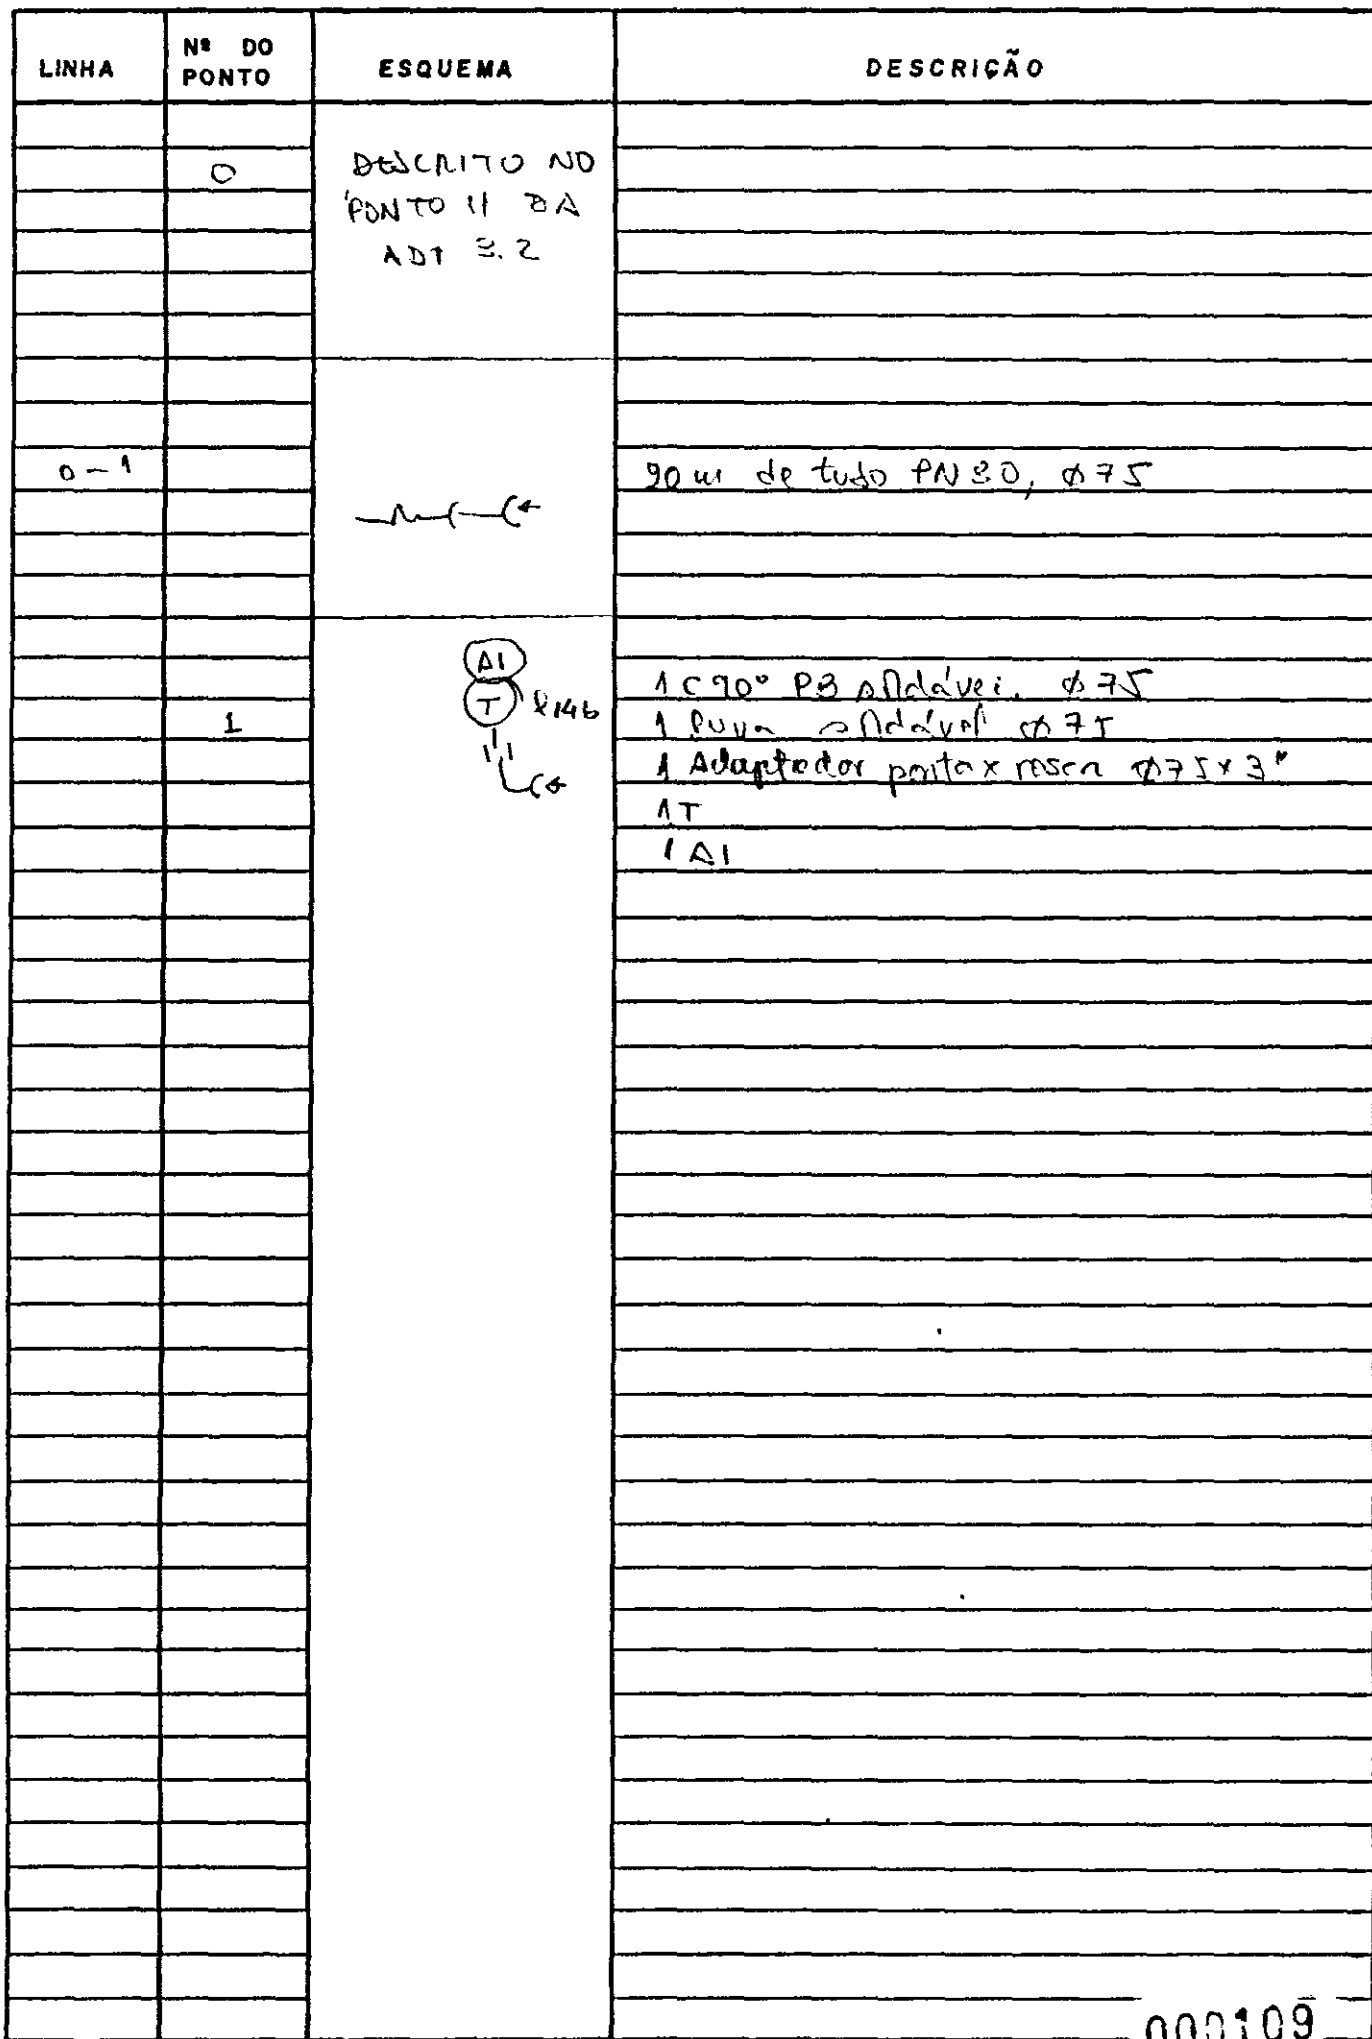 LINHA
Nº DO PONTO
ESQUEMA
DESCRIÇÃO
0
DESCRITO NO
PONTO 11 DA
ADT 3.2
0-1
90 m de tubo PN80, ø75
AI
T
1
1 C 90° PB soldável ø75
1 luva soldável ø75
1 Adaptador ponta x rosca ø75 x 3"
1 T
1 AI
000109